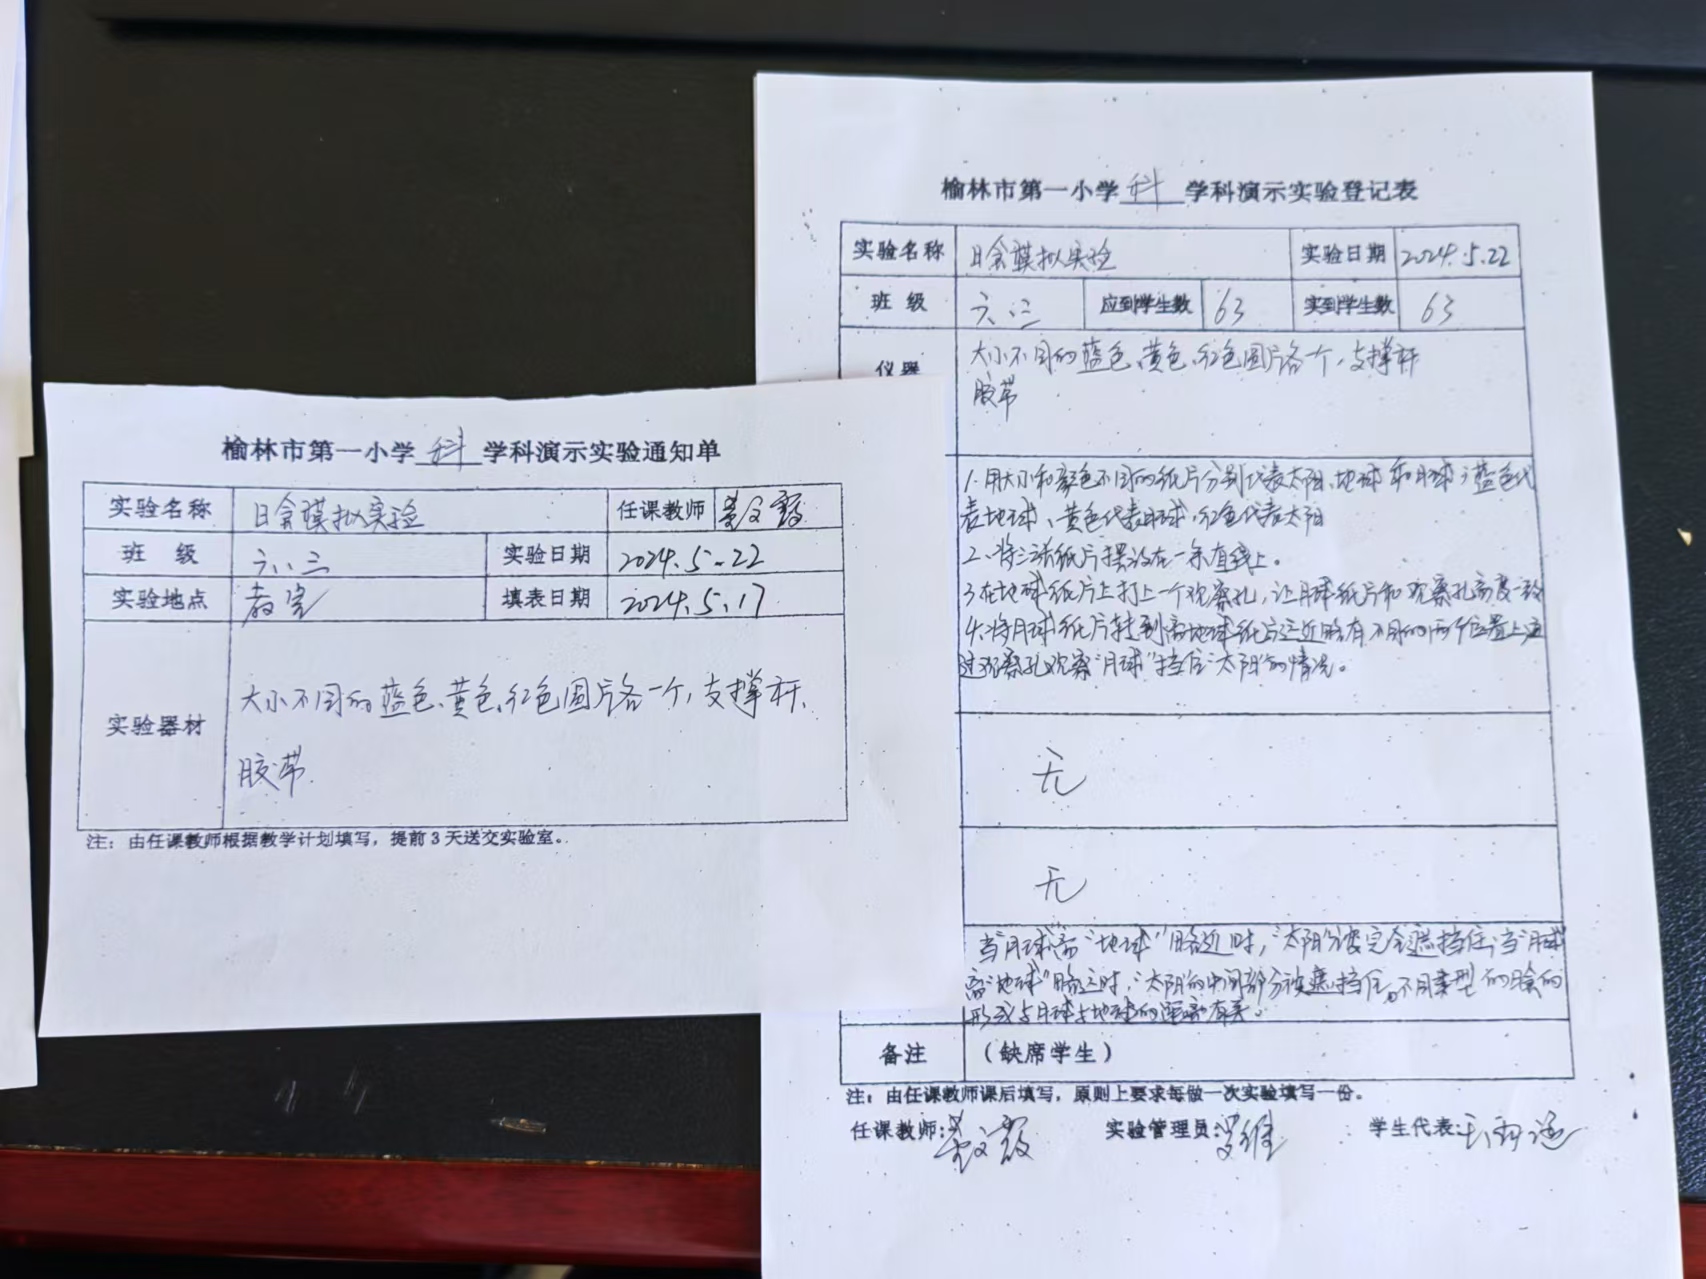 榆林市第一小学 科 学科演示实验通知单
实验名称 日食模拟实验 任课教师
班 级 六、三 实验日期 2024.5.22
实验地点 教室 填表日期 2024.5.17
实验器材 大小不同的蓝色、黄色、红色圆片各一个,支撑杆、
胶带.
注:由任课教师根据教学计划填写,提前3天送交实验室。
榆林市第一小学 科 学科演示实验登记表
实验名称 日食模拟实验 实验日期 2024.5.22
班 级 六、三 应到学生数 63 实到学生数 63
仪器 大小不同的蓝色、黄色、红色圆片各一个,支撑杆
胶带
1.用大小和颜色不同的纸片分别代表太阳、地球和月球;蓝色代
表地球、黄色代表月球,红色代表太阳
2.将三张纸片摆放在一条直线上。
3.在地球纸片上打上一个观察孔,让月球纸片和观察孔高度一致
4.将月球纸片转到离地球纸片远近略有不同的两个位置上,通
过观察孔观察“月球”挡住“太阳”的情况。
无
无
当“月球”离“地球”略近时,“太阳”被完全遮挡住;当“月球”
离“地球”略远时,“太阳”的中间部分被遮挡住。不同类型的日食的
形成与月球与地球的距离有关。
备注 (缺席学生)
注:由任课教师课后填写,原则上要求每做一次实验填写一份。
任课教师: 实验管理员: 学生代表: